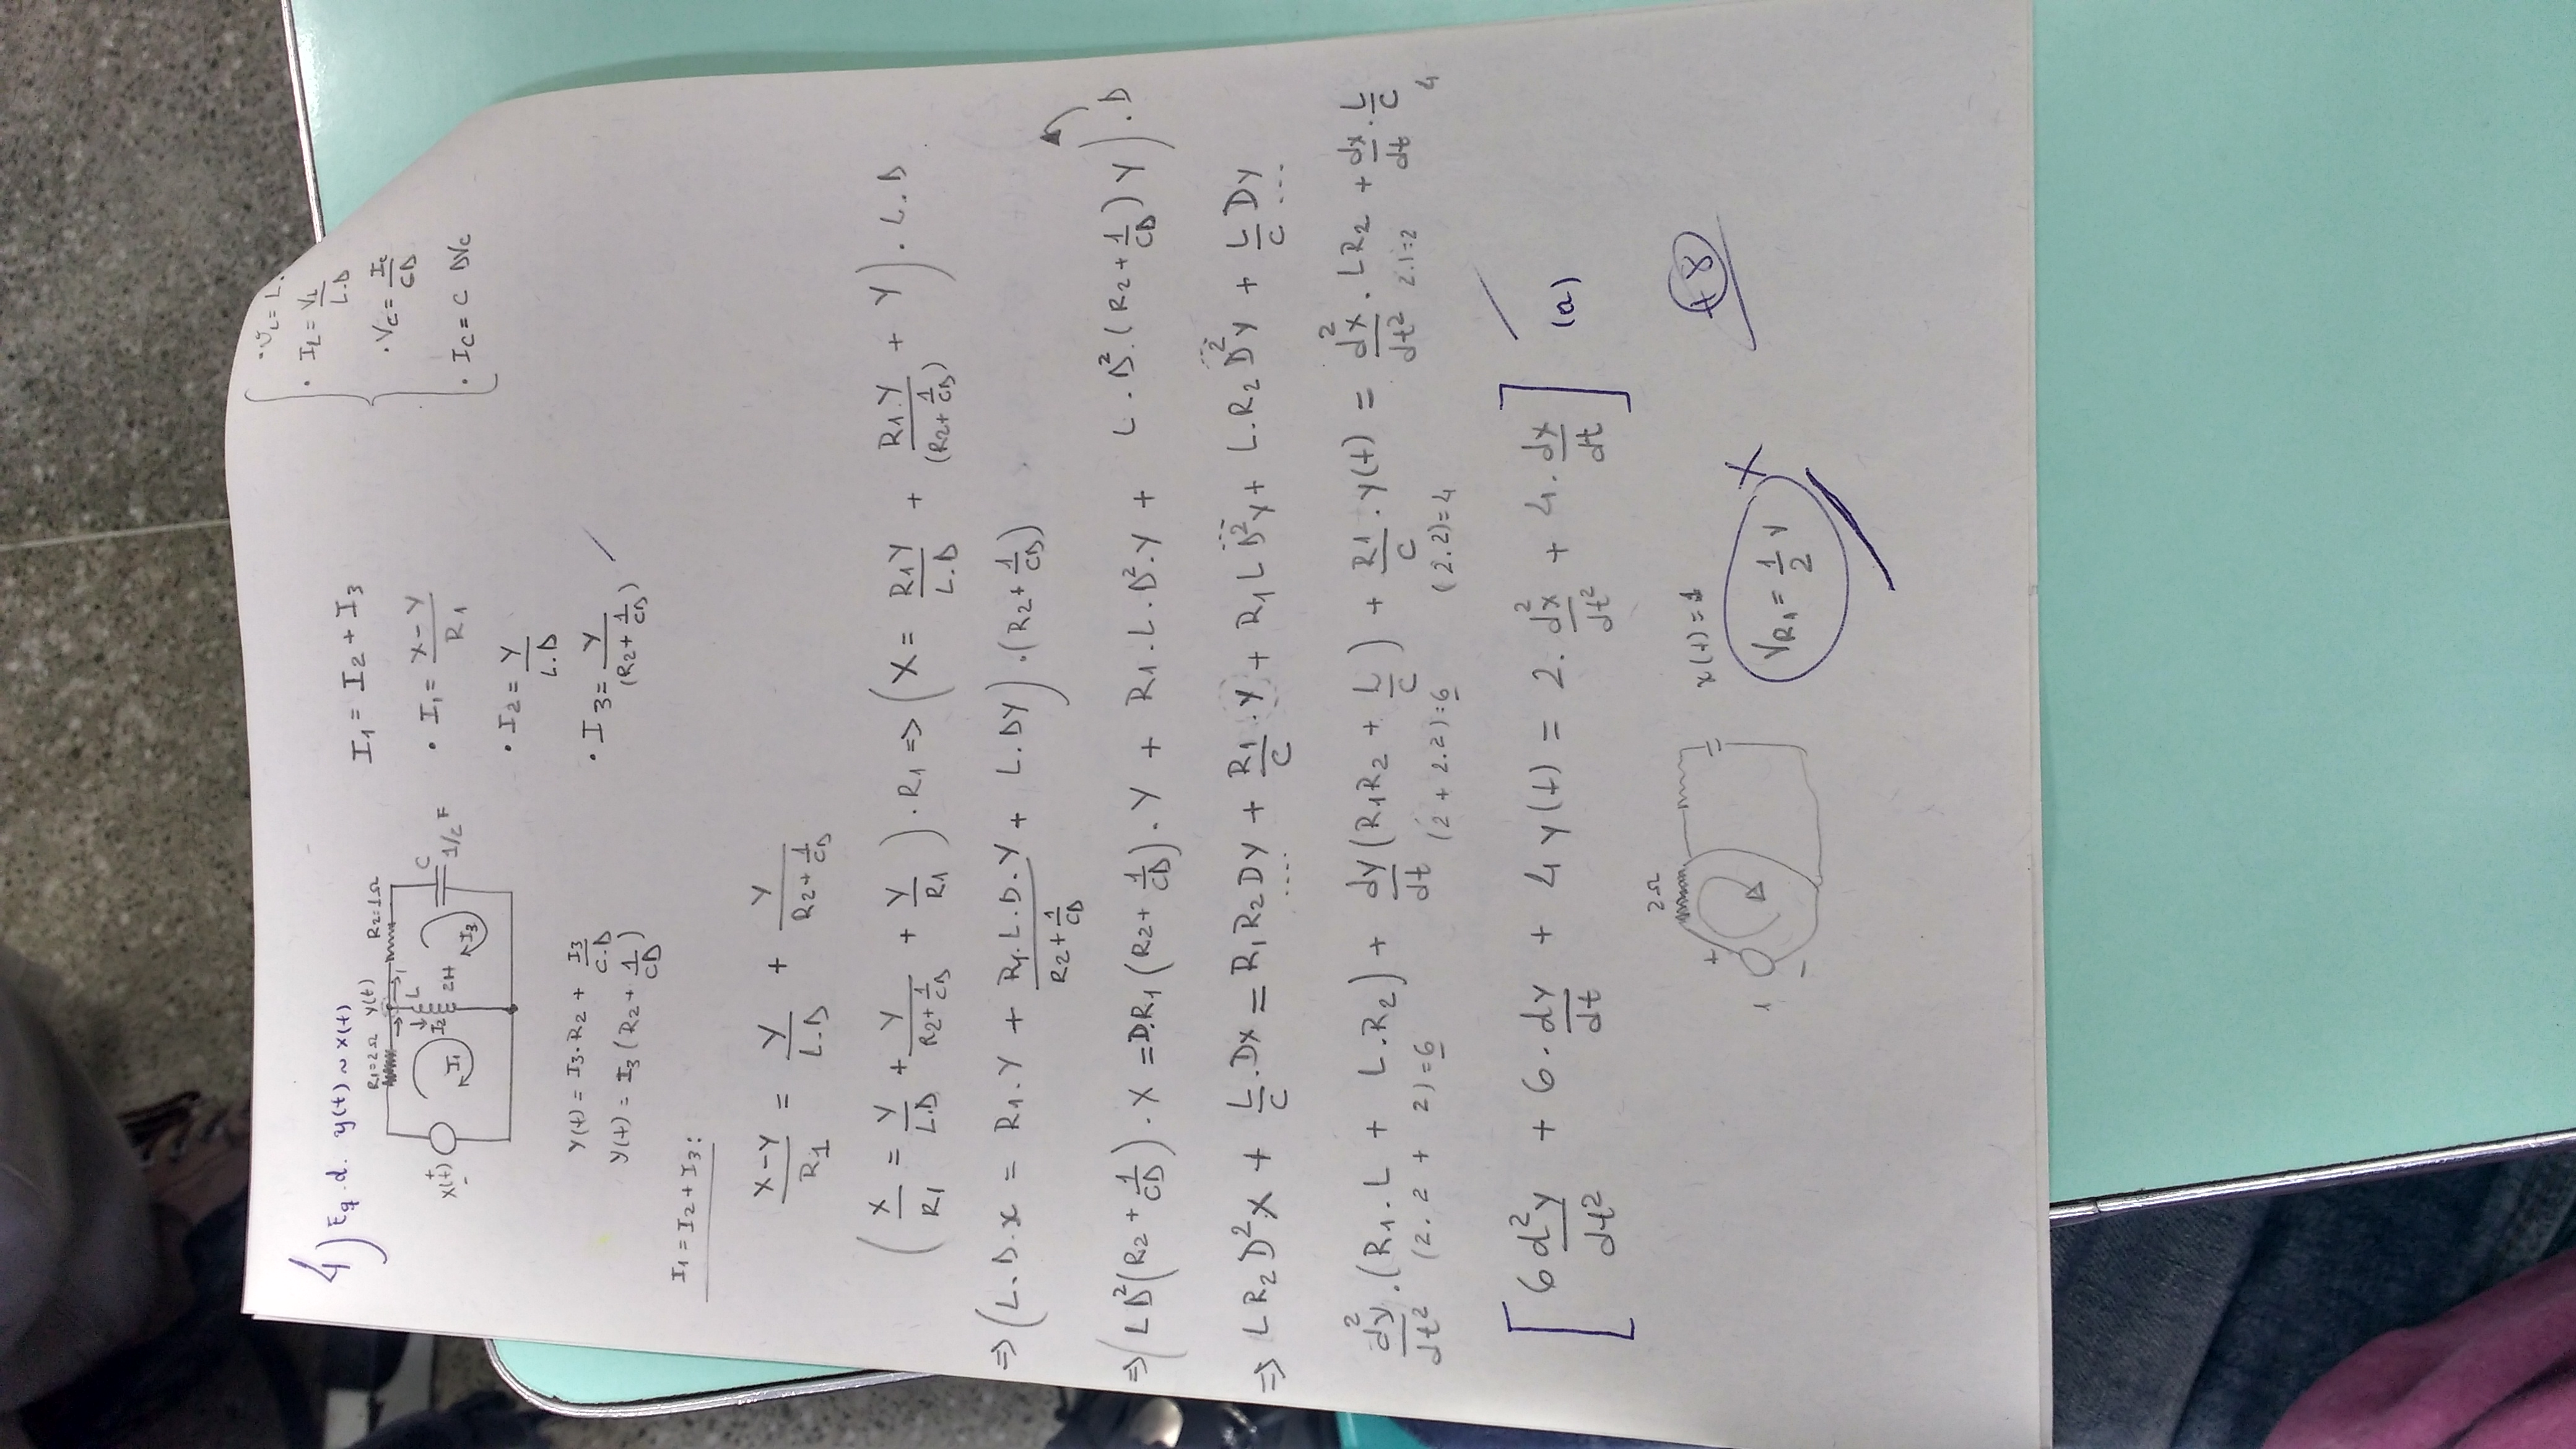 4) Eq. d. y(t) ~ x(t)
R1=2Ω y(t) R2=1Ω
x(t) + - I1 I2 L 2H I3 C 1/2 F
I1 = I2 + I3
• I1 = (X-Y)/R1
• I2 = Y/(L.D)
• I3 = Y/(R2+1/CD)
• VL = L.
• IL = VL/(L.D)
• VC = IC/(CD)
• IC = C DVC
Y(t) = I3.R2 + I3/(C.D)
Y(t) = I3 (R2+1/CD)
I1 = I2 + I3:
(X-Y)/R1 = Y/(L.D) + Y/(R2+1/CD)
(X/R1 = Y/(L.D) + Y/(R2+1/CD) + Y/R1) . R1 => (X = R1Y/(L.D) + R1.Y/(R2+1/CD) + Y) . L.D
=> (L.D.x = R1.Y + R1.L.D.Y/(R2+1/CD) + L.DY) . (R2+1/CD)
=> (LD²(R2+1/CD).X = D.R1(R2+1/CD).Y + R1.L.D².Y + L.D².(R2+1/CD)Y) .D
=> LR2D²X + L/C.DX = R1R2DY + R1/C.Y + R1LD²Y + L.R2D²Y + L/C DY
d²y/dt².(R1.L + L.R2) + dy/dt(R1R2 + L/C) + R1/C.y(t) = d²x/dt².LR2 + dx/dt.L/C
(2.2 + 2)=6 (2+2.2)=6 (2.2)=4 2.1=2 4
[6d²y/dt² + 6.dy/dt + 4y(t) = 2.d²x/dt² + 4.dx/dt] (a)
2Ω
1 + -
x(t) = 1
VR1 = 1/2 V X
+8